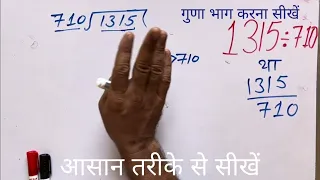 गुणा भाग करना सीखें
710)1315(
1315÷710
>710
था
1315
710
आसान तरीके से सीखें